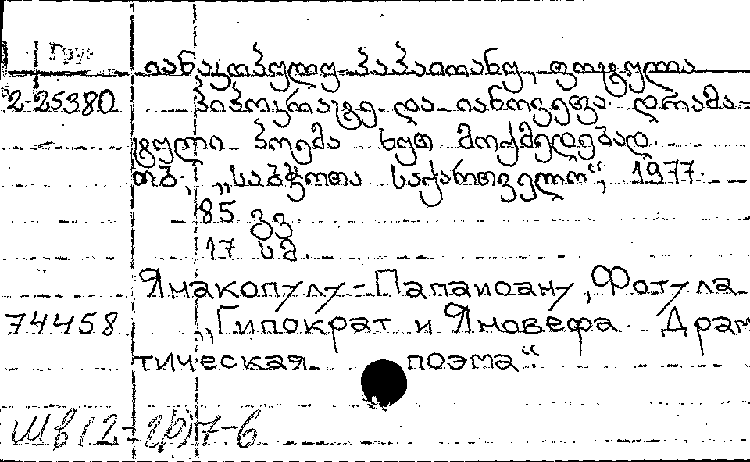 Груз
იანაკოპულუ-პაპაიოანუ, ფოტულა
2-25380 ჰიპოკრატე და იანოვეფა. დრამა-
ტული პოემა ხუთ მოქმედებად.
თბ., „საბჭოთა საქართველო“, 1977.
85 გვ.
17 სმ.
Янакопулу-Папаиоану, Фотула
74458 „Гипократ и Яновефа. Драм
тическая поэма“